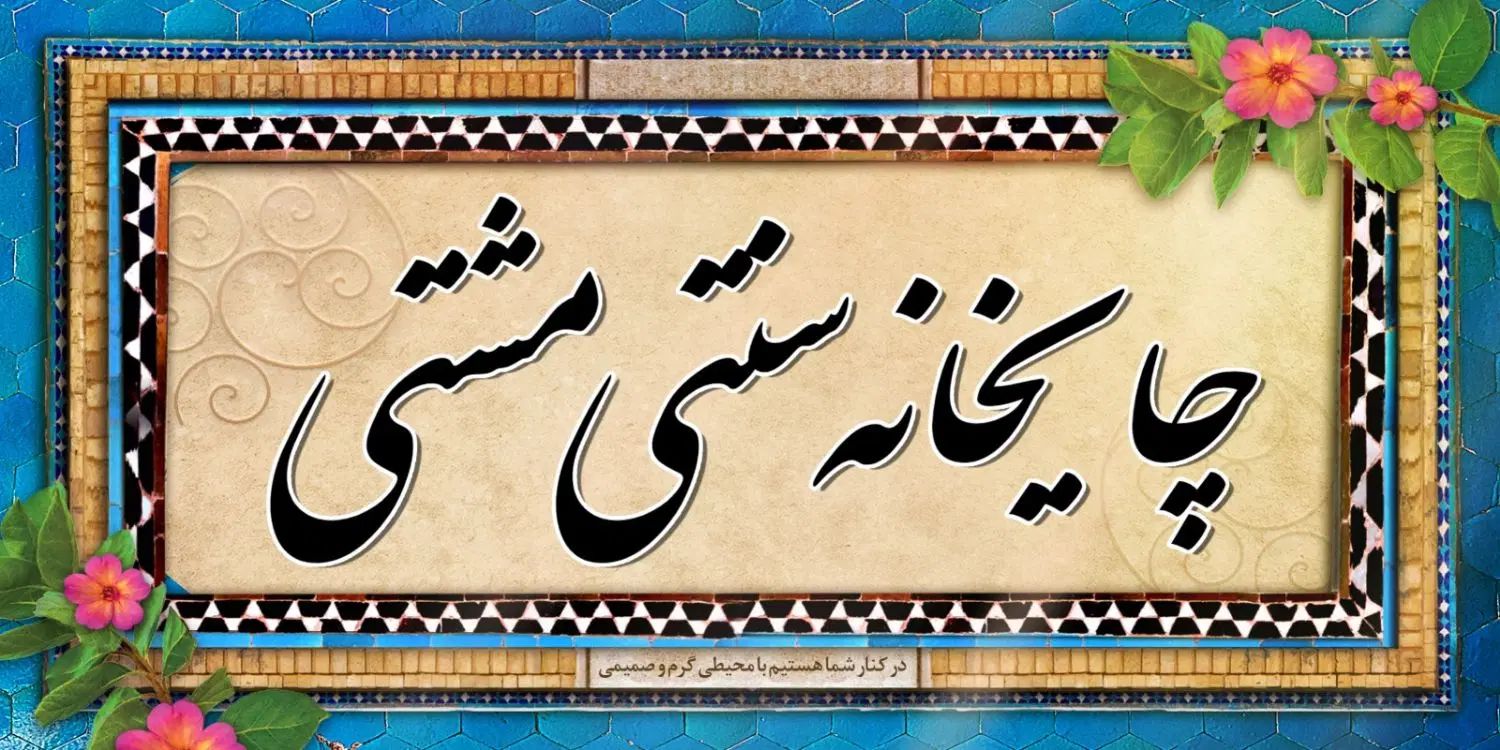 چایخانه سنتی مشتی
در کنار شما هستیم با محیطی گرم و صمیمی